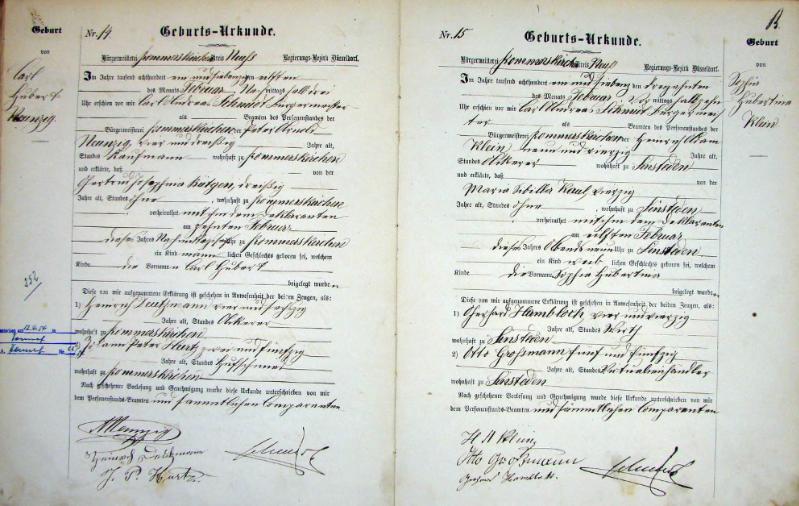 Geburt
von
Carl
Hubert
Nenzig.
Nr. 14
Geburts-Urkunde.
Bürgermeisterei Rommerskirchen Kreis Neuss Regierungs-Bezirk Düsseldorf.
Im Jahre tausend achthundert ein und siebenzig
des Monats Februar Nachmittags halb drei
Uhr erschien vor mir Carl Andreas Schmidt Bürgermeister
als Beamten des Personenstandes der
Bürgermeisterei Rommerskirchen Peter Arnold
Nenzig, vier und dreißig Jahre alt,
Standes Kaufmann wohnhaft zu Rommerskirchen
und erklärte, daß von der
Gertrud Josephina dreißig
Jahre alt, Standes ohne, wohnhaft zu Rommerskirchen
verheirathet mit ihm dem Deklaranten
am zehnten Februar
dieses Jahres Nachmittags Uhr zu Rommerskirchen
ein Kind männlichen Geschlechts geboren sei, welchem
Kinde die Vornamen Carl Hubert
beigelegt wurden.
Diese von mir aufgenommene Erklärung ist geschehen in Anwesenheit der beiden Zeugen, als:
1) Heinrich vier und
Jahre alt, Standes Ackerer
wohnhaft zu Rommerskirchen
2) Johann Peter Hurtz, zwei und fünfzig
Jahre alt, Standes
wohnhaft zu Rommerskirchen
Nach geschehener Vorlesung und Genehmigung wurde diese Urkunde unterschrieben von mir
dem Personenstands-Beamten und sämmtlichen Comparenten
Nenzig
Heinrich
J. P. Hurtz
Schmidt
252
Nr. 15
Geburts-Urkunde.
Bürgermeisterei Rommerskirchen Kreis Neuss Regierungs-Bezirk Düsseldorf.
Im Jahre tausend achthundert ein und siebenzig den dreizehnten
des Monats Februar Vormittags halb zehn
Uhr erschien vor mir Carl Andreas Schmidt Bürgermeis-
ter als Beamten des Personenstandes der
Bürgermeisterei Rommerskirchen der Heinrich Adam
Klein neun und vierzig Jahre alt,
Standes Ackerer wohnhaft zu Sinsteden
und erklärte, daß von der
Maria Sibilla vierzig
Jahre alt, Standes ohne, wohnhaft zu Sinsteden
verheirathet mit ihm dem Deklaranten
am elften Februar
dieses Jahres Abends neun Uhr zu Sinsteden
ein Kind weiblichen Geschlechts geboren sei, welchem
Kinde die Vornamen Sophia Hubertina
beigelegt wurden.
Diese von mir aufgenommene Erklärung ist geschehen in Anwesenheit der beiden Zeugen, als:
1) Gerhard Hambloch, vier und vierzig
Jahre alt, Standes Wirth
wohnhaft zu Sinsteden
2) Otto Großmann fünf und fünfzig
Jahre alt, Standes
wohnhaft zu Sinsteden
Nach geschehener Vorlesung und Genehmigung wurde diese Urkunde unterschrieben von mir
dem Personenstands-Beamten und sämmtlichen Comparenten
H A Klein
Otto Großmann
Schmidt
Geburt
von
Sophia
Hubertina
Klein